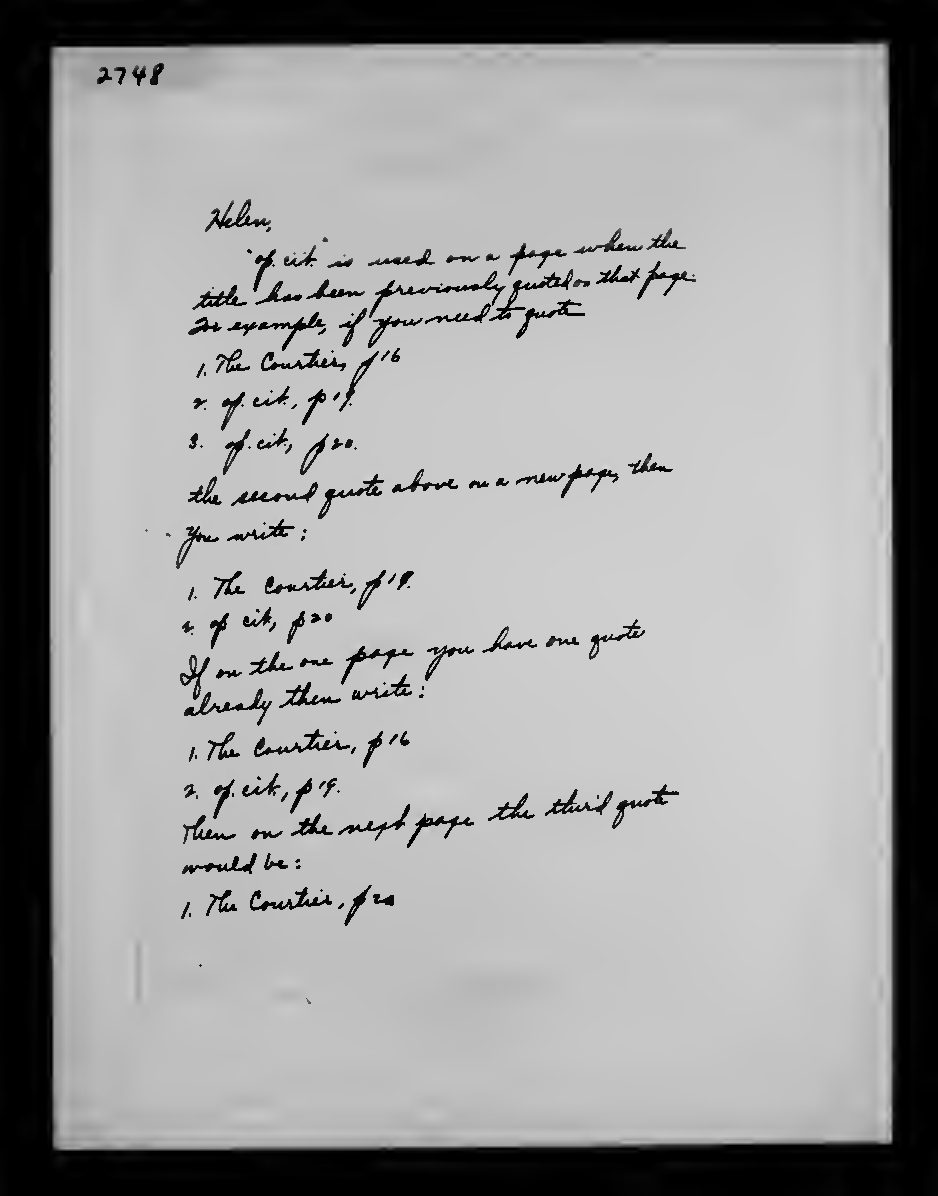 2748
Helen,
"op. cit." is used on a page when the
title has been previously quoted on that page.
For example, if you need to quote
1. The Courtier, p 16
2. op. cit., p 19.
3. op. cit., p 20.
the second quote above on a new page, then
you write:
1. The Courtier, p 19.
2. op cit, p 20
If on the one page you have one quote
already then write:
1. The Courtier, p 16
2. op. cit., p 19.
Then on the next page the third quote
would be:
1. The Courtier, p 20